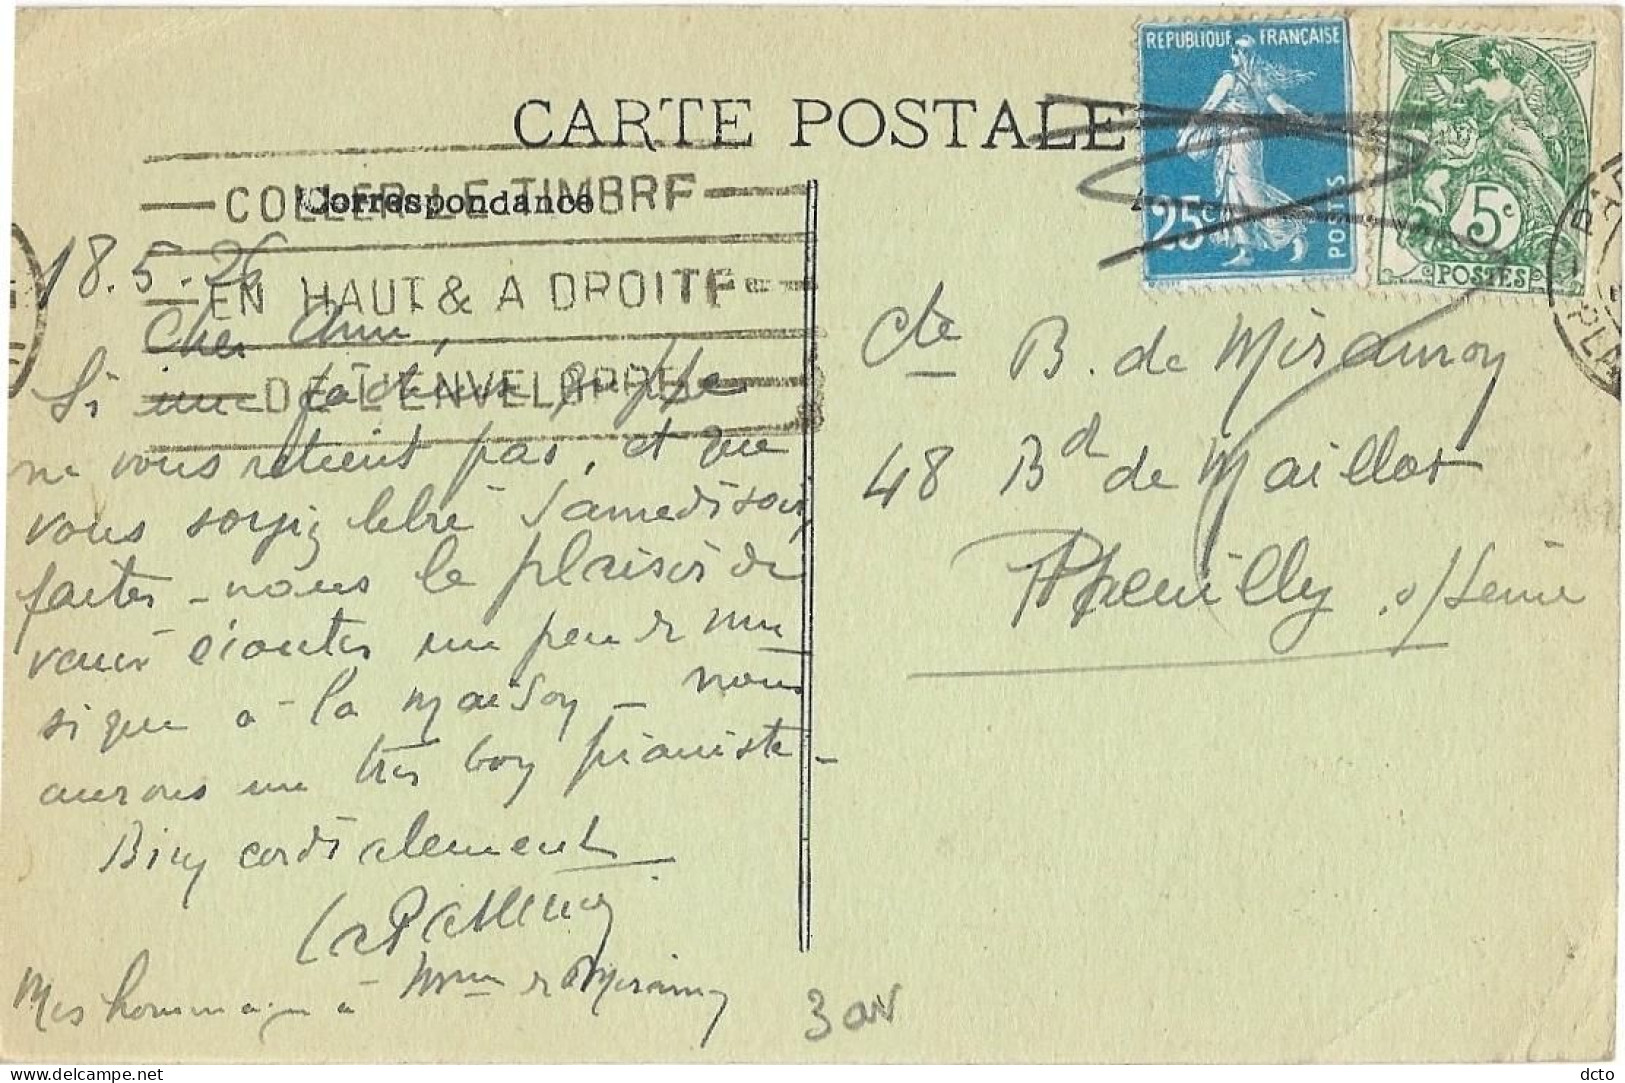 CARTE POSTALE
Correspondance
COLLER LE TIMBRE
EN HAUT & A DROITE
DE L'ENVELOPPE
REPUBLIQUE FRANÇAISE
25c
POSTES
5c
POSTES
18.5.26
Cher Ami,
Si une
ne vous retient pas, et que
vous soyiez libre Samedi soir,
faites-nous le plaisir de
venir écouter un peu de mu
sique à la maison - nous
aurons un très bon pianiste -
Bien cordialement
Mes hommages à Mme de Miramon
Cte B. de Miramon
48 Bd de Maillot
Neuilly s/Seine
3 av
dcto